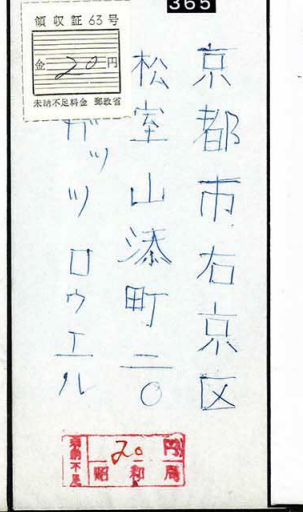 365
領収証 63号
金 20 円
未納不足料金 郵政省
京都市右京区
松室山添町二〇
ガッツ ロウエル
未納不足
20 円
昭和局